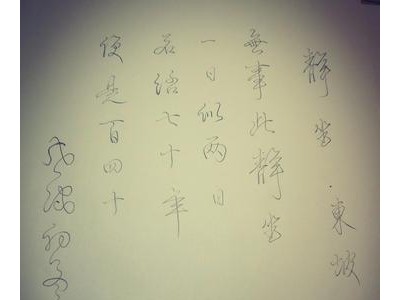 靜坐·東坡
無事此靜坐
一日似兩日
若活七十年
便是百四十
戊戌初冬